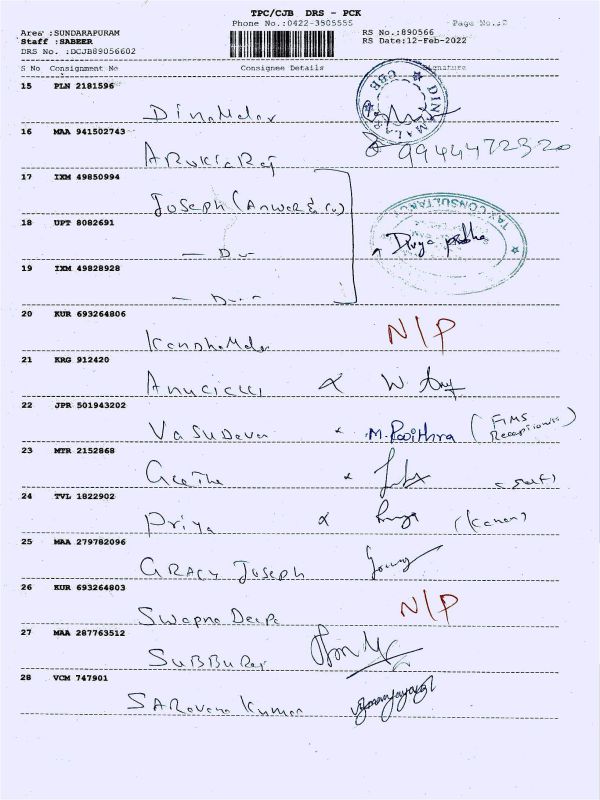 TPC/CJB DRS - PCK
Phone No.:0422-3505555 Page No.:2
Area :SUNDARAPURAM RS No.:890566
Staff :SABEER RS Date:12-Feb-2022
DRS No. :DCJB89056602
S No Consignment No Consignee Details Signature
15 PLN 2181596
DinaMalar
DINAMALAR CBE
16 MAA 941502743
ARokiaRaj 9944472320
17 IXM 49850994
Joseph (Anwar & Co)
18 UPT 8082691
— Do —
TAX CONSULTANCY
Divya prabha
19 IXM 49828928
20 KUR 693264806
N/P
21 KRG 912420
22 JPR 501943202
Vasudevan M. Pavithra (FIMS Receptionist)
23 MTR 2152868
Geetha (Staff)
24 TVL 1822902
Priya
25 MAA 279782096
GRACY Joseph
26 KUR 693264803
Swapna Deepa N/P
27 MAA 287763512
SUBBURaj
28 VCM 747901
SARavana Kumar